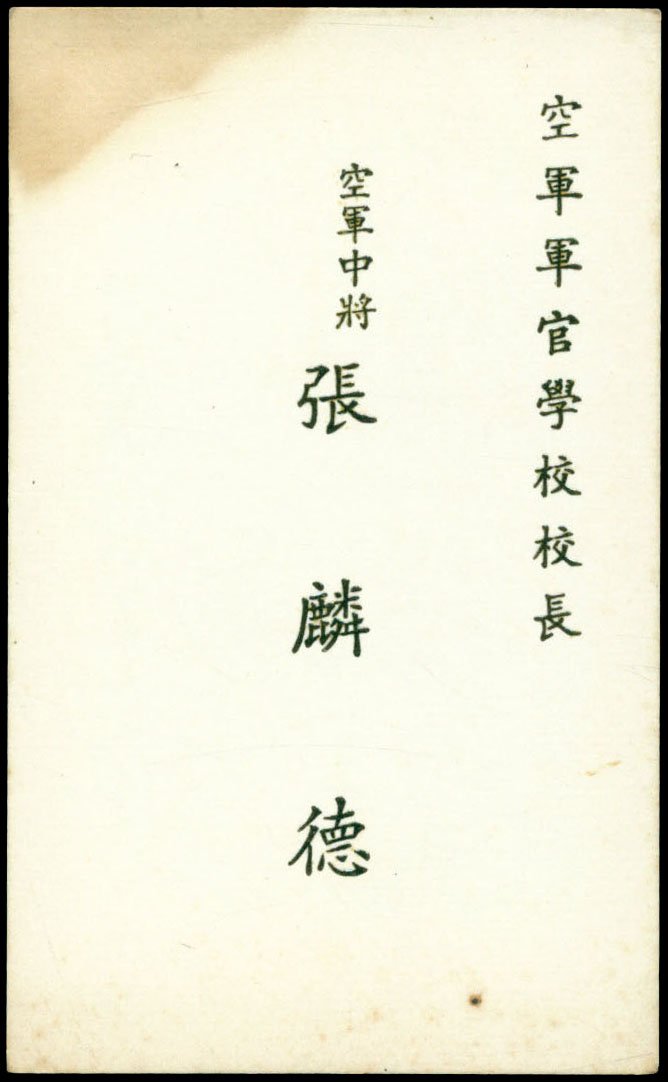 空軍軍官學校校長
空軍中將
張麟德